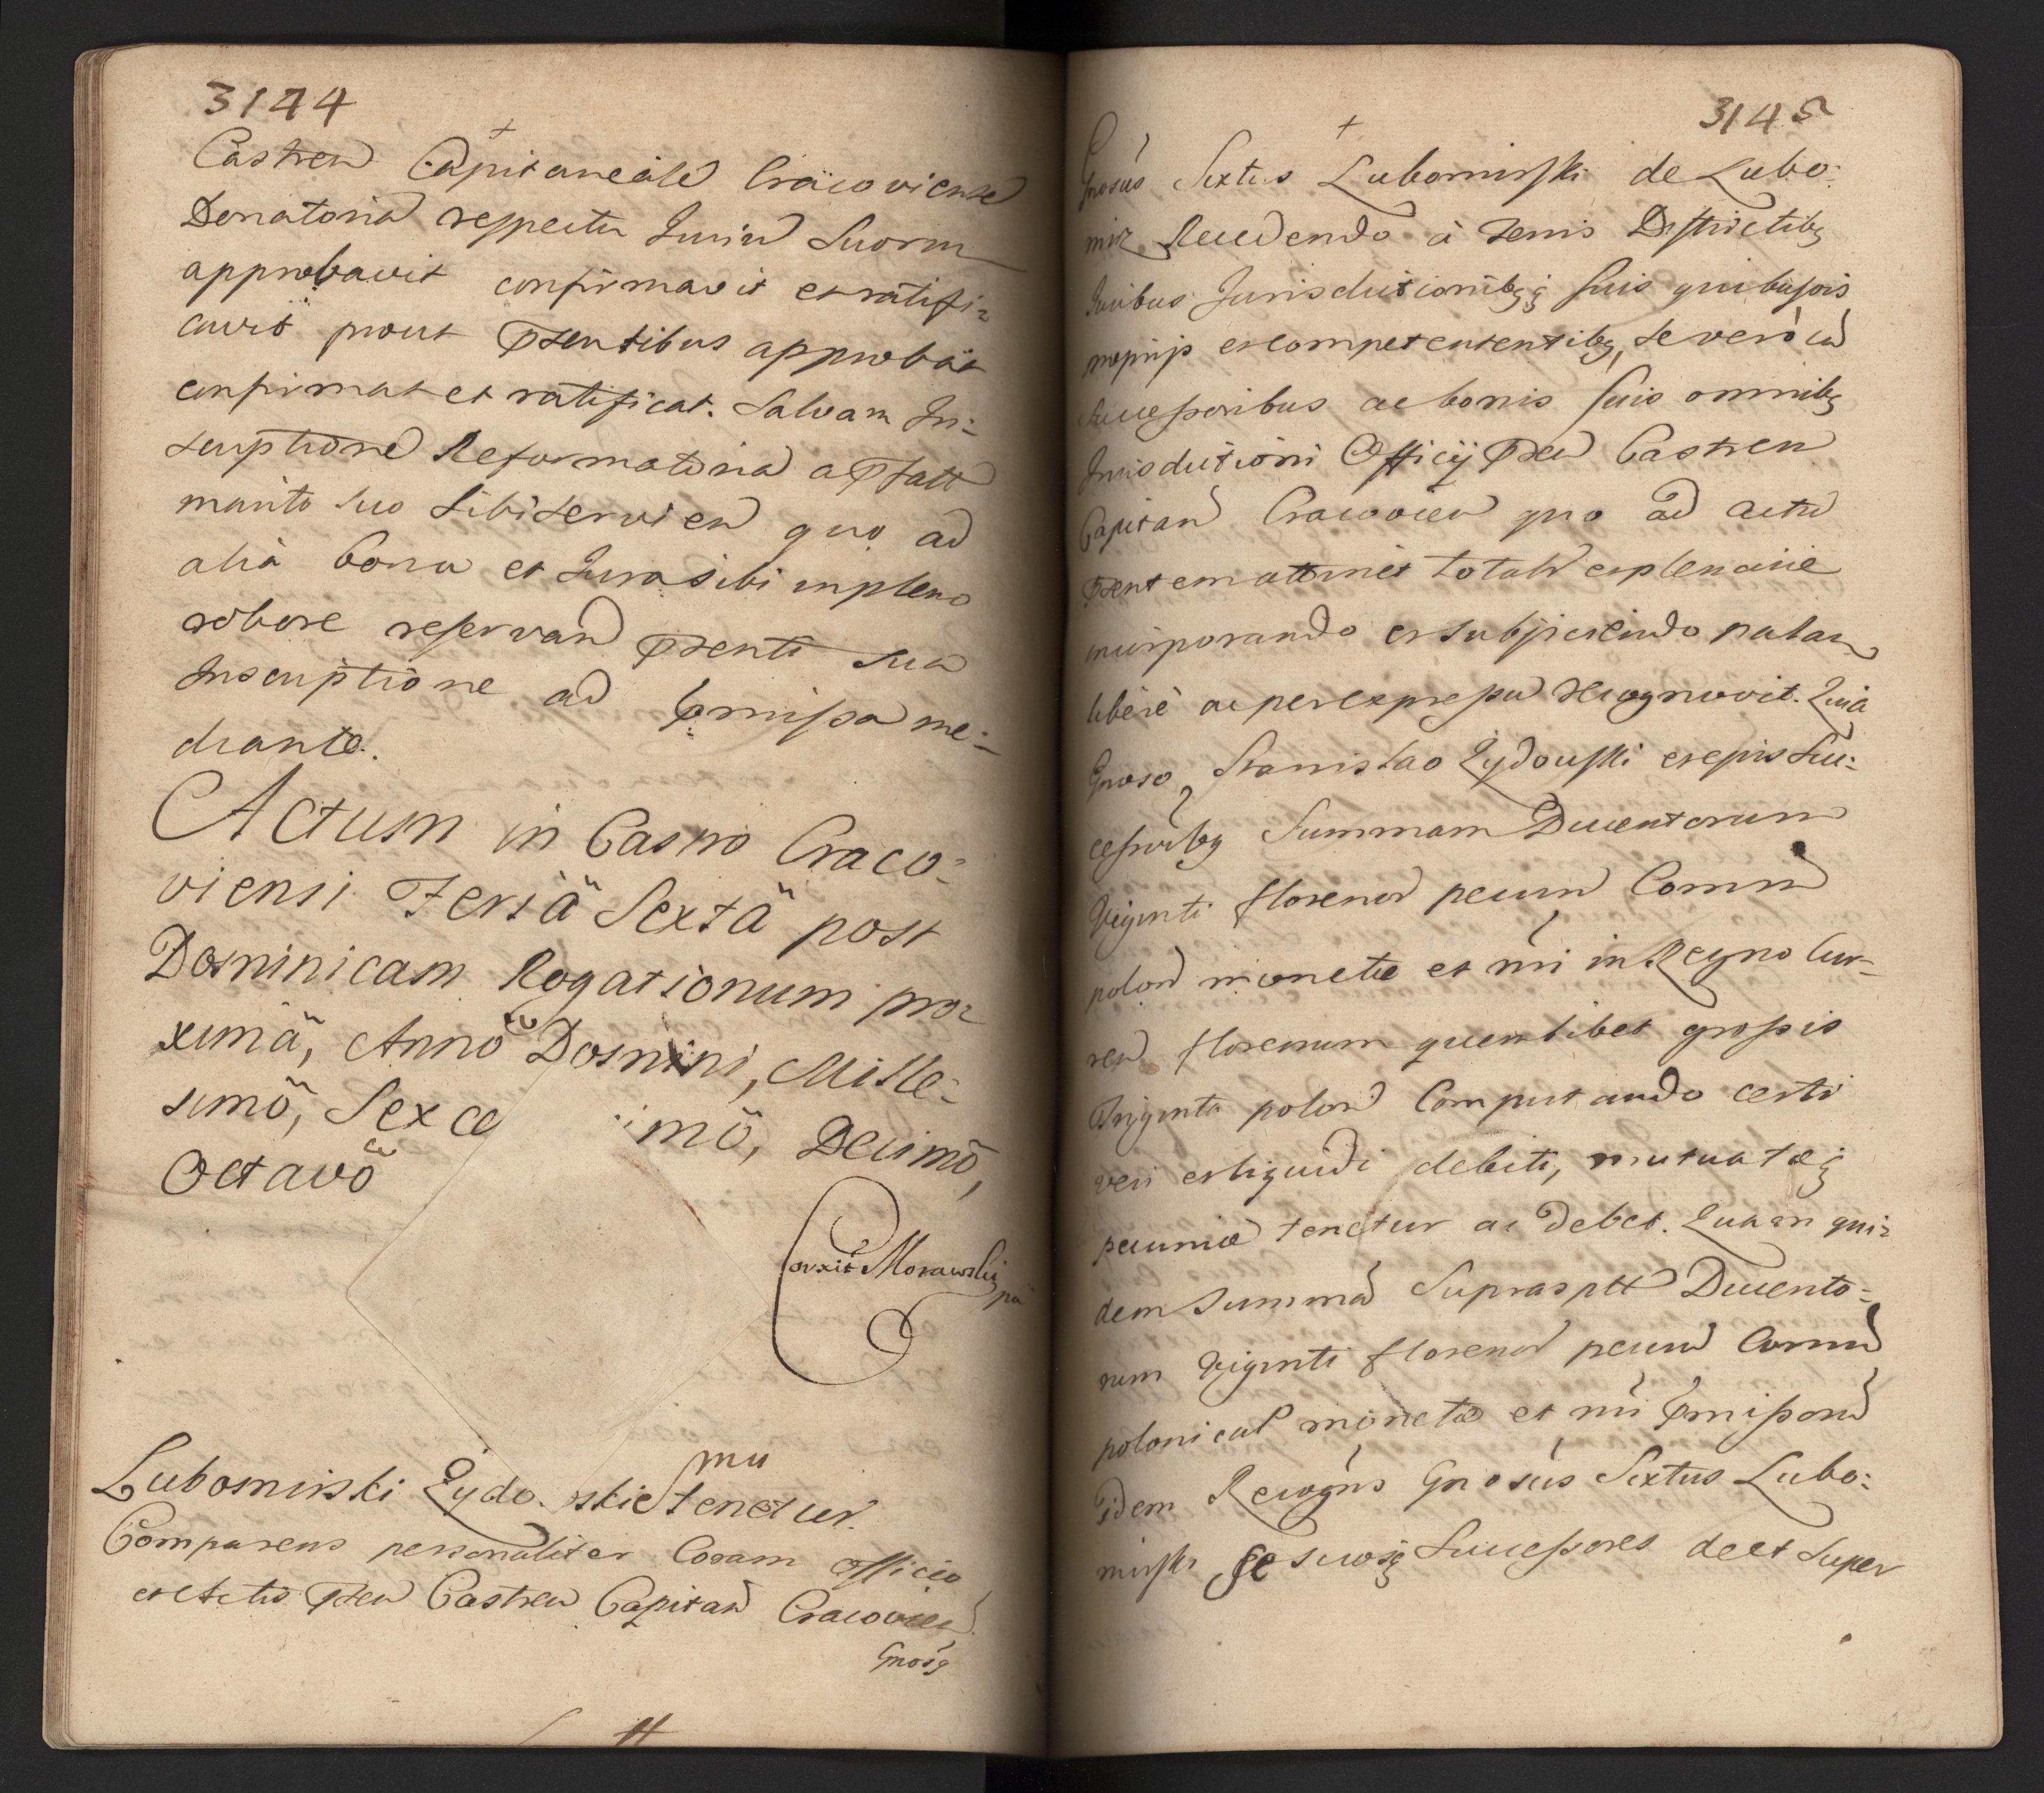 3144
Castren Capitaneale Cracoviense
Donatoria respectu Jurium Suorum
approbavit confirmavit et ratifi-
cavit prout Psentibus approbat
confirmat et ratificat. Salvam In-
scriptione Reformatoria a Pfatt
marito suo sibi servien quo ad
alia bona et Jura sibi in pleno
robore reservan Psenti sua
Inscriptione ad Pmissa me-
diante.
Actum in Castro Craco-
viensi Feriä Sextä post
Dominicam Rogationum pro-
ximä, Annö Domini, Mille-
simö, Sexce imö, Decimö,
Octavö
Corexit Morawski
mpa
Lubomirski Zydo skiemu tenetur.
Comparens personaliter Coram officio
et Actis Psen Castren Capitan Cracovien
Gnosg
3145
Gnosus Sixtus Lubomirski de Lubo:
mirz Recedendo à terris Districtibg
Juribus Jurisdictionibgq suis quibusvis
proprijs et competentibg, se vero cu
Successoribus ac bonis suis omnibg
Jurisdictioni Officij Psen Castren
Capitan Cracovien quo ad actu
Psentem attinet totalr et plenarie
incorporando et subijciendo palam
libere ac per expressu recognovit. Quia
Gnoso Stanislao Zydowski et eius Suc-
cessoribg Summam Ducentorum
Viginti florenor pecun Comun
polon monetae et nri in Regno Cur-
ren florenum quemlibet grossis
Triginta polon Computando certi
veri et liquidi debiti, mutuatæq
pecuniæ tenetur ac debet. Quam qui-
dem Summa Suprasptt Ducento-
rum Viginti florenor pecun Comun
polonical moneta et nri Pmissoru
idem Recogns Gnosus Sixtus Lubo:
mirski se suosq Successores de et super